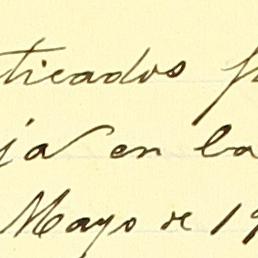 ticados p
ja en la
Mayo de 19